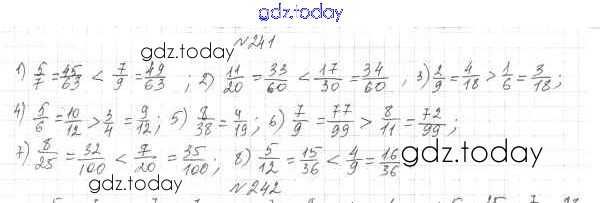 gdz.today
№241
1) 5/7 = 45/63 < 7/9 = 49/63 ; 2) 11/20 = 33/60 < 17/30 = 34/60 , 3) 2/9 = 4/18 > 1/6 = 3/18 ;
gdz.today
4) 5/6 = 10/12 > 3/4 = 9/12 ; 5) 8/38 = 4/19 ; 6) 7/9 = 77/99 > 8/11 = 72/99 ;
7) 8/25 = 32/100 < 7/20 = 35/100 ; 8) 5/12 = 15/36 < 4/9 = 16/36
gdz.today
gdz.today
№242